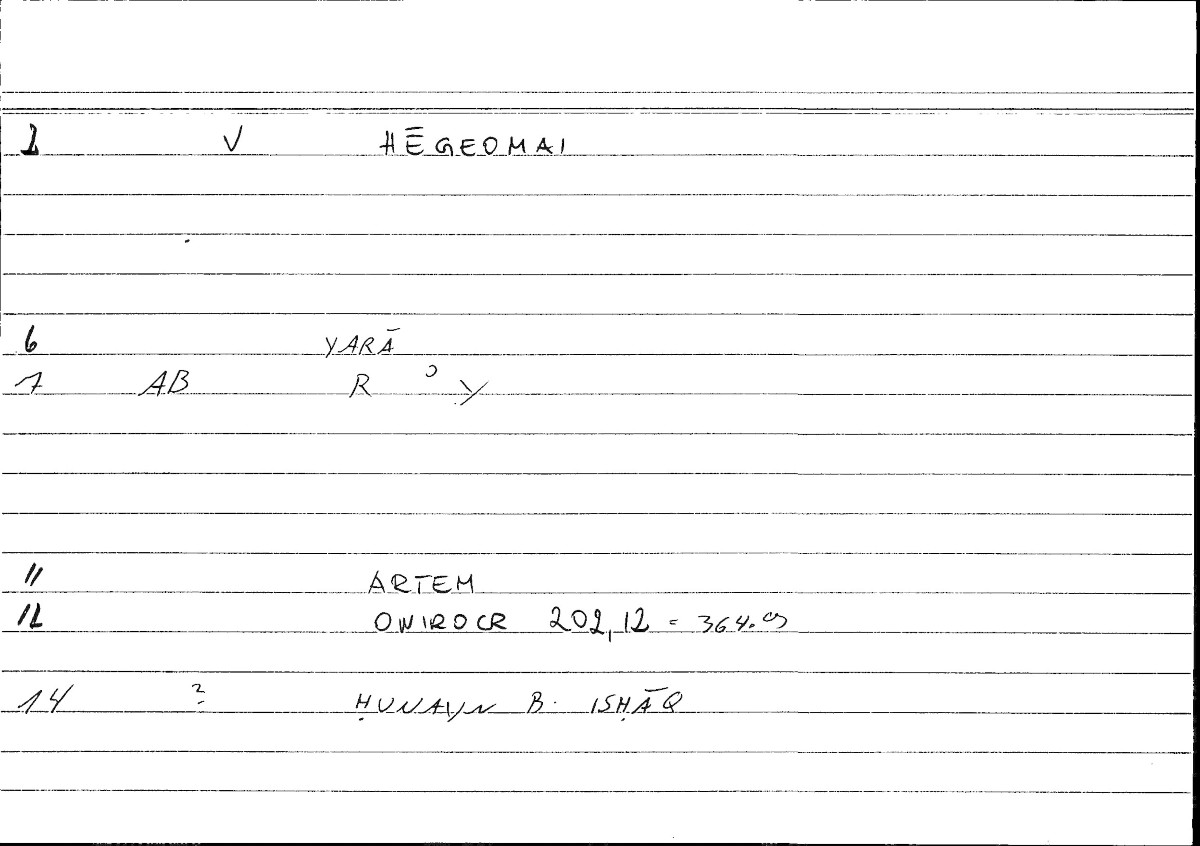 1 V HĒGEOMAI
6 YARĀ
7 AB R ʾ Y
11 ARTEM
12 ONIROCR 202,12 = 364.
14 ? ḤUNAYN B. ISḤĀQ